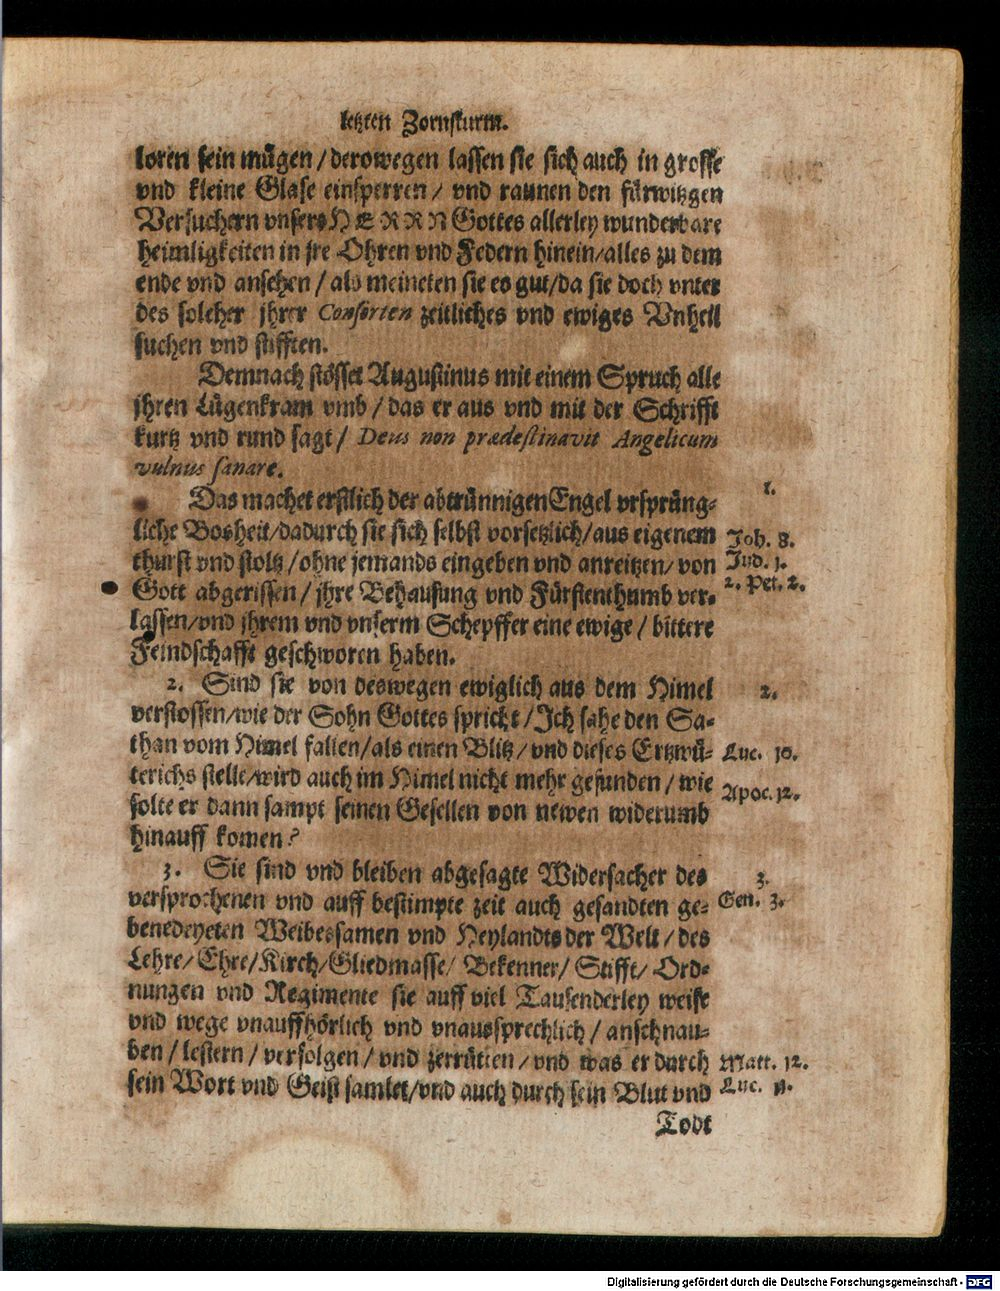 letzten Zornsturm.
loren sein mügen / derowegen lassen sie sich auch in grosse
vnd kleine Glase einsperren / vnd raunen den fürwitzgen
Versuchern vnsers HERRN Gottes allerley wunderbare
heimligkeiten in jre Ohren vnd Federn hinein / alles zu dem
ende vnd ansehen / als meineten sie es gut / da sie doch vnter
des solcher jhrer Consorten zeitliches vnd ewiges Vnheil
suchen vnd stifften.
Demnach stösset Augustinus mit einem Spruch alle
jhren Lügenkram vmb / das er aus vnd mit der Schrifft
kurtz vnd rund sagt / Deus non prædestinavit Angelicum
vulnus sanare.
Das machet erstlich der abtrünnigen Engel vrspräng-
1.
liche Bosheit / dadurch sie sich selbst vorsetzlich / aus eigenem
Joh. 8.
thurst vnd stoltz / ohne jemands eingeben vnd anreitzen / von
Jud. 1.
Gott abgerissen / jhre Behausung vnd Fürstenthumb ver-
2. Pet. 2.
lassen / vnd jhrem vnd vnserm Schepffer eine ewige / bittere
Feindschafft geschworen haben.
2. Sind sie von deswegen ewiglich aus dem Himel
2.
verstossen / wie der Sohn Gottes spricht / Ich sahe den Sa-
than vom Himel fallen / als einen Blitz / vnd dieses Ertzwü-
Luc. 10.
terichs stelle / wird auch im Himel nicht mehr gefunden / wie
Apoc. 12.
solte er dann sampt seinen Gesellen von newen widerumb
hinauff komen?
3. Sie sind vnd bleiben abgesagte Widersacher des
3.
versprochenen vnd auff bestimpte zeit auch gesandten ge-
Gen. 3.
benedeyeten Weibessamen vnd Heylandts der Welt / des
Lehre / Ehre / Kirch / Gliedmasse / Bekenner / Stifft / Ord-
nungen vnd Regimente sie auff viel Tausenderley weise
vnd wege vnauffhörlich vnd vnaussprechlich / anschnau-
ben / lestern / verfolgen / vnd zerrütten / vnd was er durch
Matt. 12.
sein Wort vnd Geist samlet / vnd auch durch sein Blut vnd
Luc. 11.
Todt
Digitalisierung gefördert durch die Deutsche Forschungsgemeinschaft - DFG